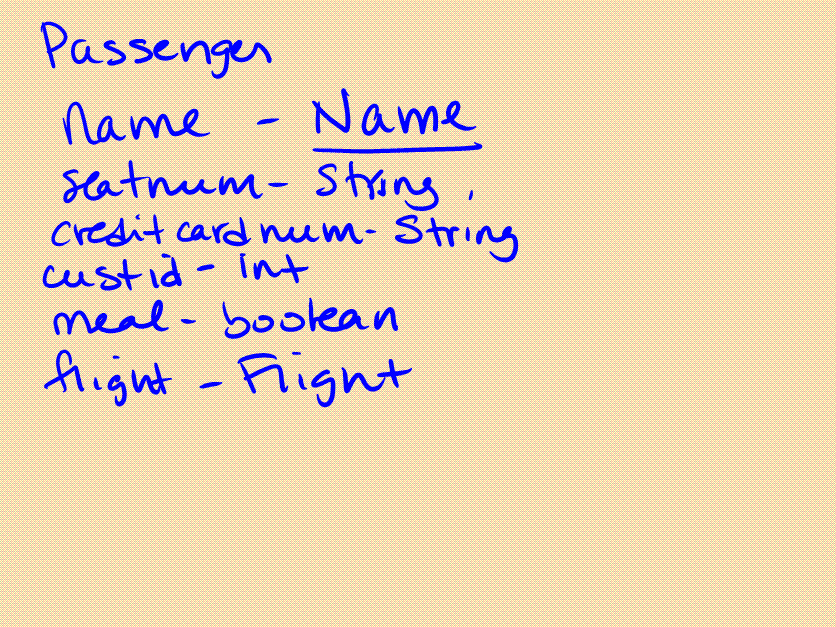 Passenger
name - Name
seatnum - String
creditcardnum - String
custid - int
meal - boolean
flight - Flight